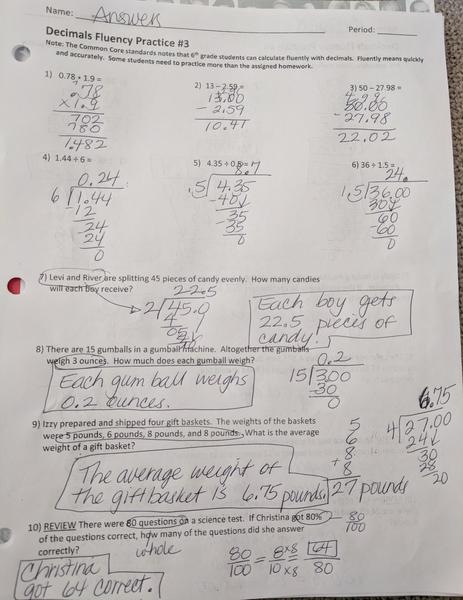 Name: Answers
Period:
Decimals Fluency Practice #3
Note: The Common Core standards notes that 6th grade students can calculate fluently with decimals. Fluently means quickly
and accurately. Some students need to practice more than the assigned homework.
1) 0.78 • 1.9 =
.78
x1.9
702
780
1.482
2) 13 – 2.59 =
13.00
- 2.59
10.41
3) 50 - 27.98 =
50.00
-27.98
22.02
4) 1.44 ÷ 6 =
0.24
6 1.44
-12
24
24
0
5) 4.35 ÷ 0.5 =
8.7
.5 4.35
-40
35
-35
0
6) 36 ÷ 1.5 =
24.
1.5 36.00
30
60
-60
0
7) Levi and River are splitting 45 pieces of candy evenly. How many candies
will each boy receive?
22.5
2 45.0
4
05
Each boy gets
22.5 pieces of
candy.
8) There are 15 gumballs in a gumball machine. Altogether the gumballs
weigh 3 ounces. How much does each gumball weigh?
0.2
15 3.00
-30
0
Each gum ball weighs
0.2 ounces.
9) Izzy prepared and shipped four gift baskets. The weights of the baskets
were 5 pounds, 6 pounds, 8 pounds, and 8 pounds. What is the average
weight of a gift basket?
5
6
8
+ 8
27 pounds
6.75
4 27.00
24
30
28
20
The average weight of
the gift basket is 6.75 pounds.
10) REVIEW There were 80 questions on a science test. If Christina got 80%
of the questions correct, how many of the questions did she answer
correctly?
whole
80
100
80/100 = 8 x8/10 x8 = 64/80
Christina
got 64 correct.